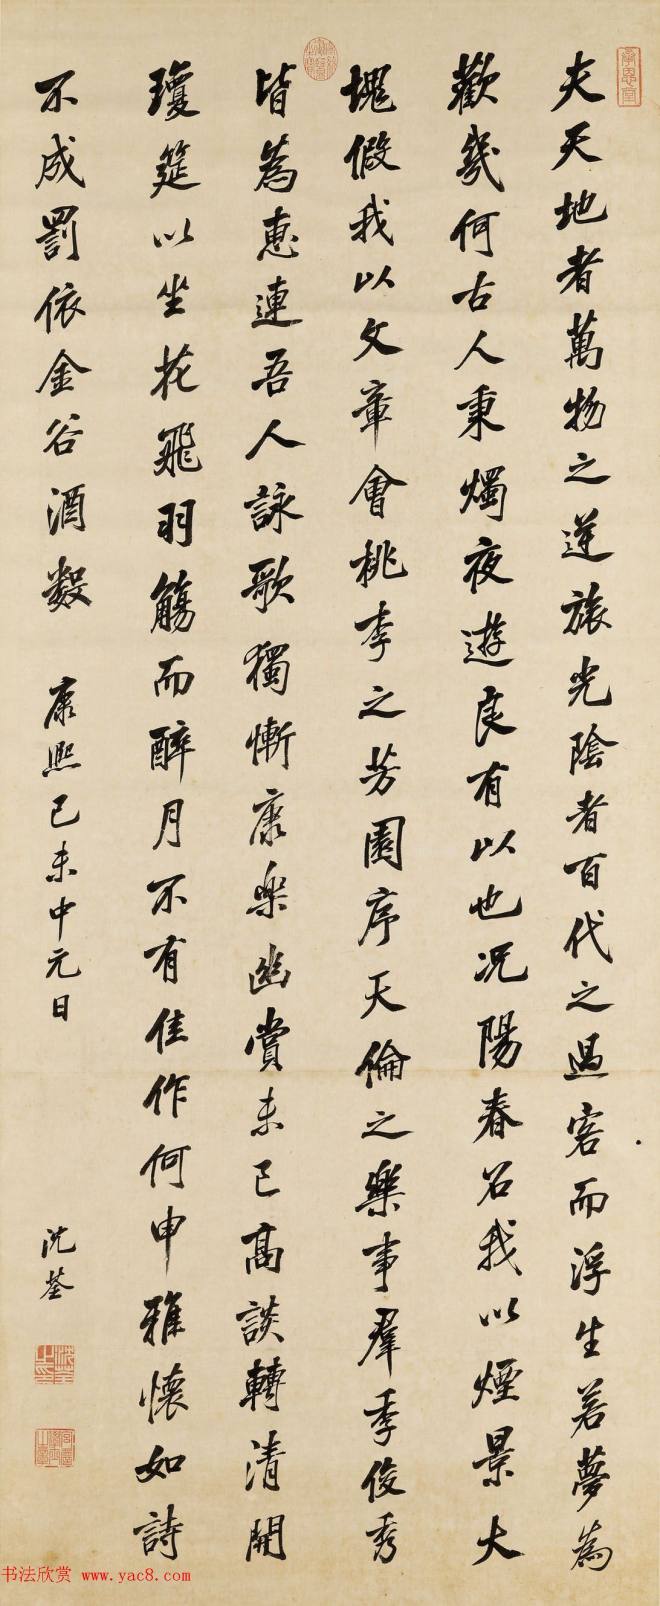 夫天地者萬物之逆旅光陰者百代之過客而浮生若夢為
歡幾何古人秉燭夜遊良有以也况陽春召我以煙景大
塊假我以文章會桃李之芳園序天倫之樂事羣季俊秀
皆為惠連吾人詠歌獨慚康樂幽賞未已高談轉清開
瓊筵以坐花飛羽觴而醉月不有佳作何申雅懷如詩
不成罰依金谷酒數 康熙己未中元日 沈荃
书法欣赏 www.yac8.com